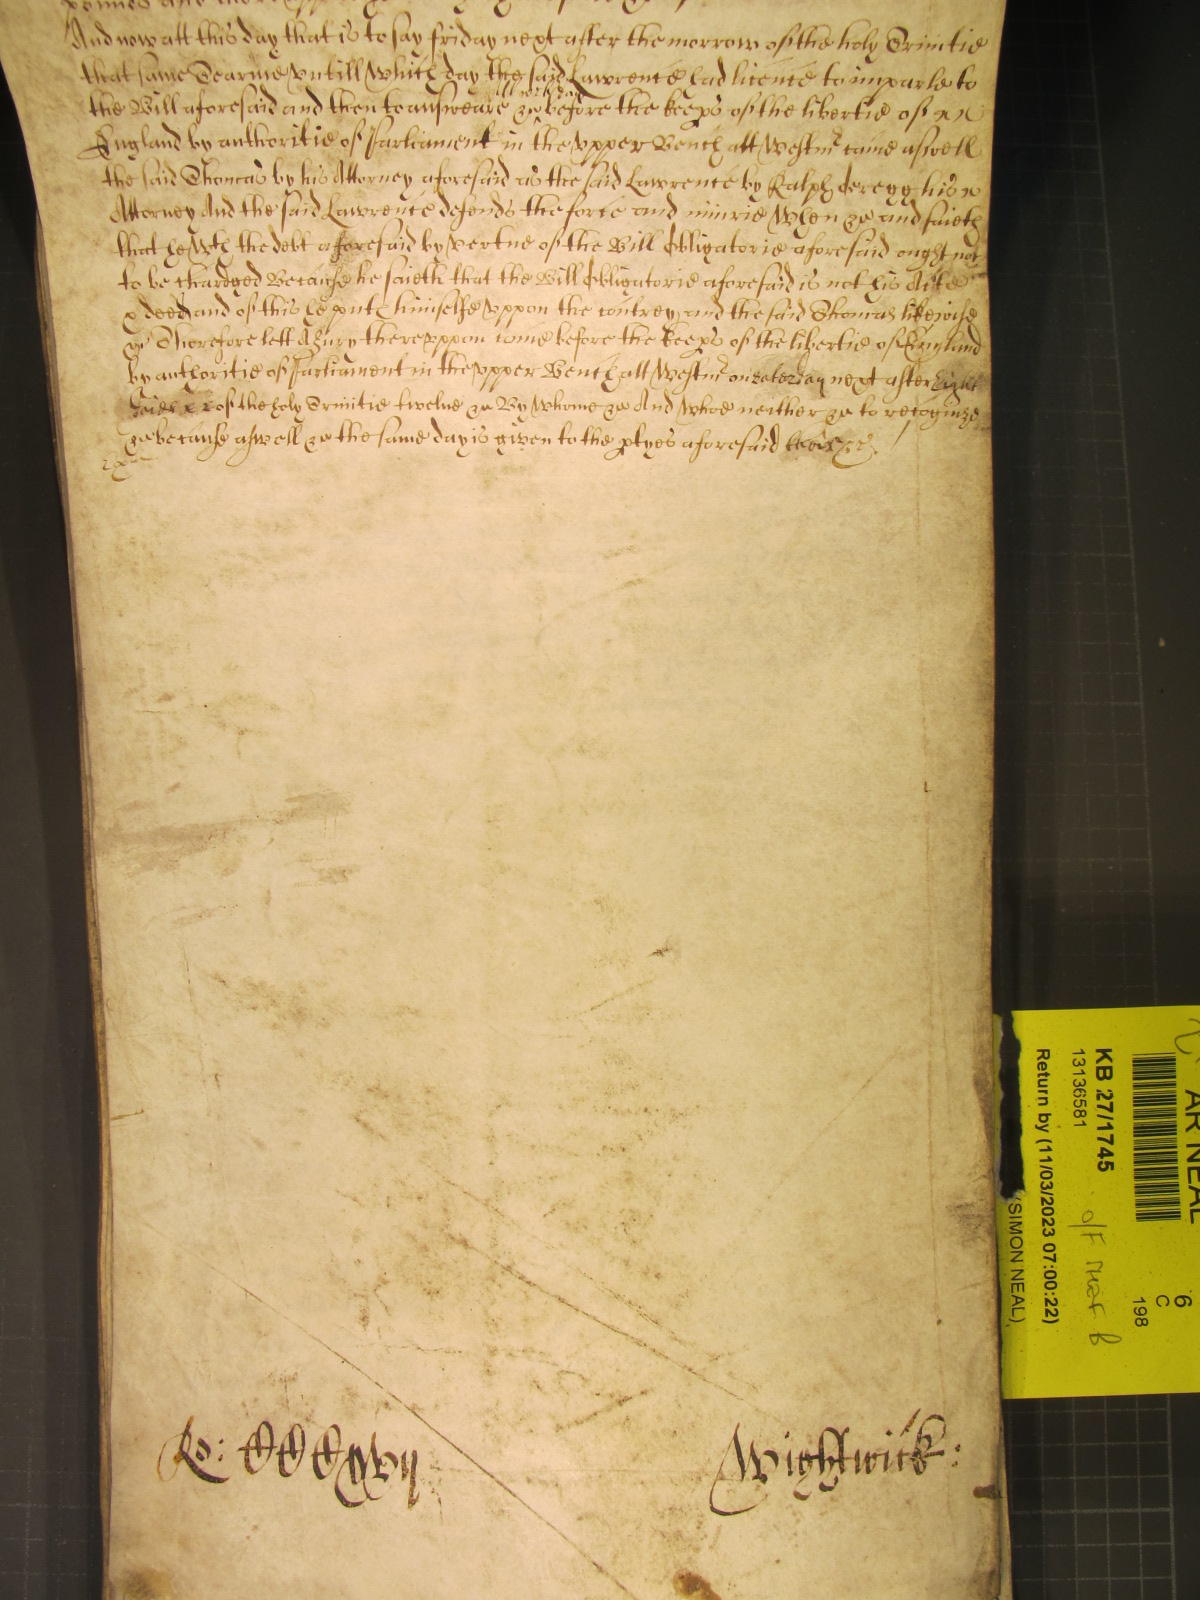 And now att this day that is to say friday next after the morrow of the holy Trinitie
that same Tearme untill which day the said Lawrence had licence to imparle to
the Bill aforesaid and then to answeare &c before the keeps of the libertie of
England by authoritie of Parliament in the upper Bench att Westmr came aswell
the said Thomas by his Attorney aforesaid as the said Lawrence by Ralph Geregg his
Attorney And the said Lawrence defends the force and iniurie when &c and saieth
that he wth the debt aforesaid by vertue of the Bill Obligatorie aforesaid ought not
to be chardged Because he saieth that the Bill Obligatorie aforesaid is not his Acte
& deed and of this he putts himselfe uppon the contrey and the said Thomas likewise
&c Therefore lett A Jury thereuppon come before the keeps of the libertie of England
by authoritie of Parliament in the upper Bench att Westmr on Saterday next after Eight
of the holy Trinitie twelve &c By whome &c And whoe neither &c to recognize
&c because aswell &c the same day is given to the ptyes aforesaid there &c
Ro: DCCCxvij
Wightwick:
AR NEAL
6
C
198
KB 27/1745
13136581
Return by (11/03/2023 07:00:22)
(SIMON NEAL)